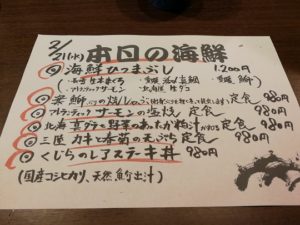 2/21(水) 本日の海鮮
◎海鮮ひつまぶし 1,200円
・長崎 生本まぐろ ・愛媛 活〆真鯛 ・愛媛 鰤
・アトランティックサーモン ・北海道 生ダコ
定食 980円
◎アトランティックサーモンの塩焼 定食 980円
◎北海 真ダラと野菜のあったか粕汁 定食 980円
◎三陸 カキと春菊の天ぷら 定食 980円
◎くじらのレアステーキ丼 980円
(国産コシヒカリ、天然魚介出汁)